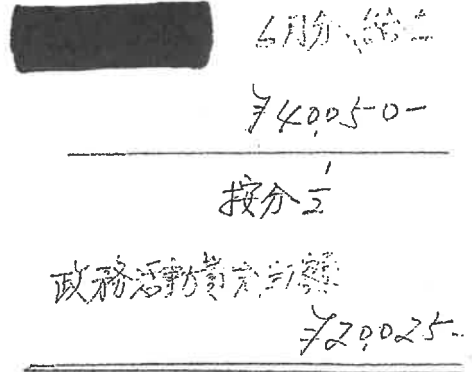 6月分、給与
¥40,050-
按分 1/2
政務活動費充当額
¥20,025-